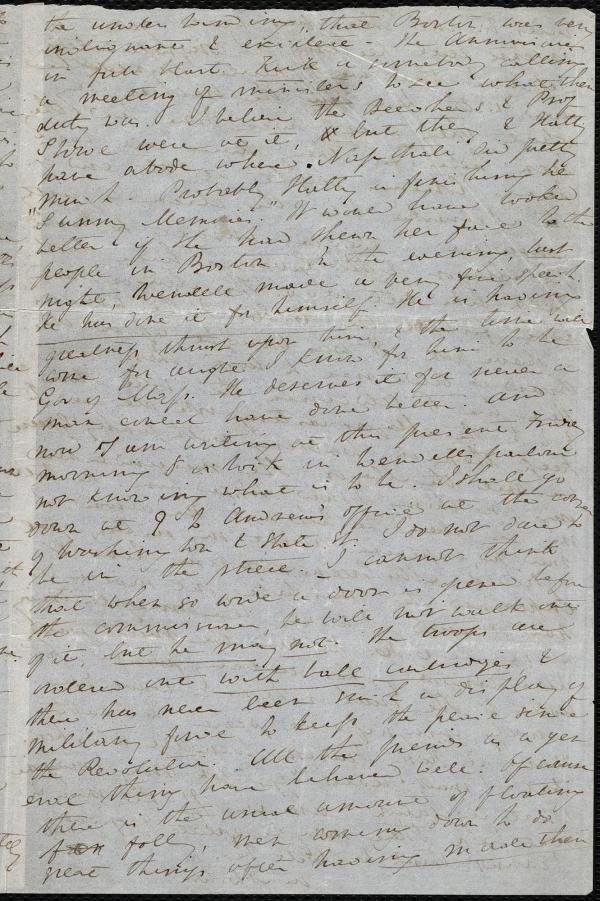 the understanding, that Boston was very
indignant & excited - the Anniversaries
in full blast. Kirk is somebody calling
a meeting of ministers to see what their
duty was. I believe the Beechers & Prof
Stowe were at it, & but they & Hatty
have abode where Naphtali did pretty
much. Probably Hatty is finishing the
"Sunny Memories." It would have looked
better if she had shewn her face to the
people in Boston. In the evening, last
night, Wendell made a very fine speech
He has done it for himself. He is having
greatness thrust upon him, & the time will
come for aught I know for him to be
Gov of Mass. He deserves it for never a
man could have done better. And
now I am writing at this present Friday
morning 8 o'clock in Wendell's parlour
not knowing what is to be. I shall go
down at 9 to Andrew's office at the corner
of Washington & State St. I do not dare to
be in the street. I cannot think
that when so wide a door is opened before
the commissioner, he will not walk out
of it, but he may not. The troops are
ordered out with ball cartridges, &
there has never been such a display of
military force to keep the peace since
the Revolution. All the friends as a gen
eral thing have behaved well. Of course
there is the usual amount of floating
folly, men coming down to do
great things after having made their